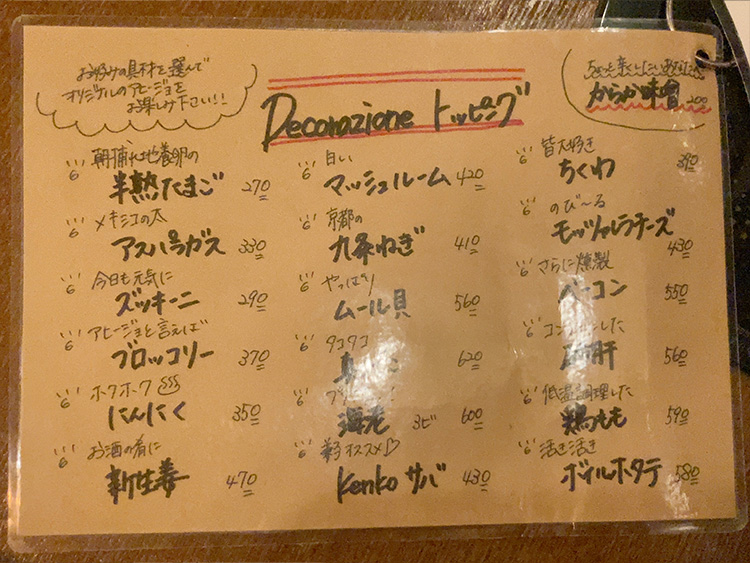 お好みの具材を選んで
オリジナルのアヒージョを
お楽しみ下さい!!
Decorazione トッピング
ちょっと辛くしたいあなたへ
からか味噌 200
朝捕れ地養卵の
半熟たまご 270
メキシコの太
アスパラガス 330
今日も元気に
ズッキーニ 290
アヒージョと言えば
ブロッコリー 370
ホクホク
にんにく 350
お酒の肴に
新生姜 470
白い
マッシュルーム 420
京都の
九条ねぎ 410
やっぱり
ムール貝 560
タコタコ
620
海老 3ピ 600
オススメ♡
Kenko サバ 430
皆大好き
ちくわ 390
のび〜る
モッツァレラチーズ
430
さらに燻製
ベーコン 550
肝 560
低温調理した
鶏もも 590
活き活き
ボイルホタテ 580